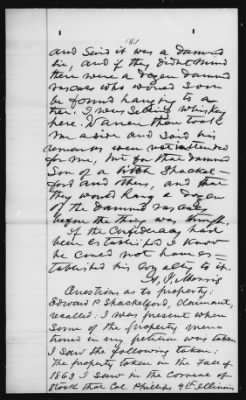 181
and said it was a damned
lie, and if they didnt mind
there were a dozen damned
rascals who would soon
be found hanging to a
tree. I was selling whiskey
here. Warren then took
me aside and said his
remarks were not intended
for me, but for that damned
Son of a bitch Shackel-
ford and others, and that
they would hang a dozen
of the damned rascals
before the thing was through.
If the Confederacy had
been established I know
he could not have es-
tablished his loyalty to it.
Morris
Questions as to property.
Edward P. Shackelford, Claimant,
recalled: I was present when
some of the property men-
tioned in my petition was taken
I saw the following taken:
The property taken in the Fall of
1863 I saw in the Corrall of
stock that Col Phillips 9th Illinois